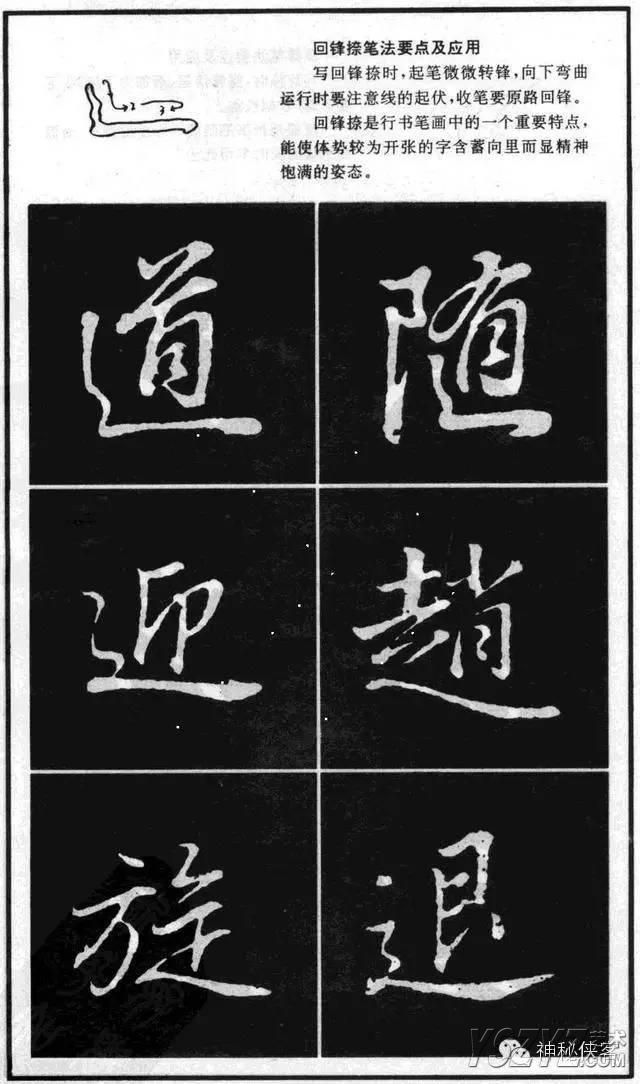 回锋捺笔法要点及应用
写回锋捺时,起笔微微转锋,向下弯曲
运行时要注意线的起伏,收笔要原路回锋。
回锋捺是行书笔画中的一个重要特点,
能使体势较为开张的字含蓄向里而显精神
饱满的姿态。
道 随
迎 趙
旋 退
神秘侠客